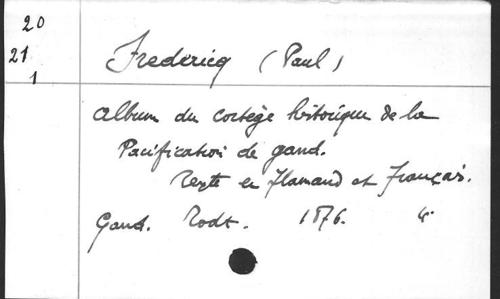 20
21
1
Fredericq (Paul)
Album du cortège historique de la
Pacification de gand.
Texte en flamand et français.
Gand. Rodt. 1876. 4°